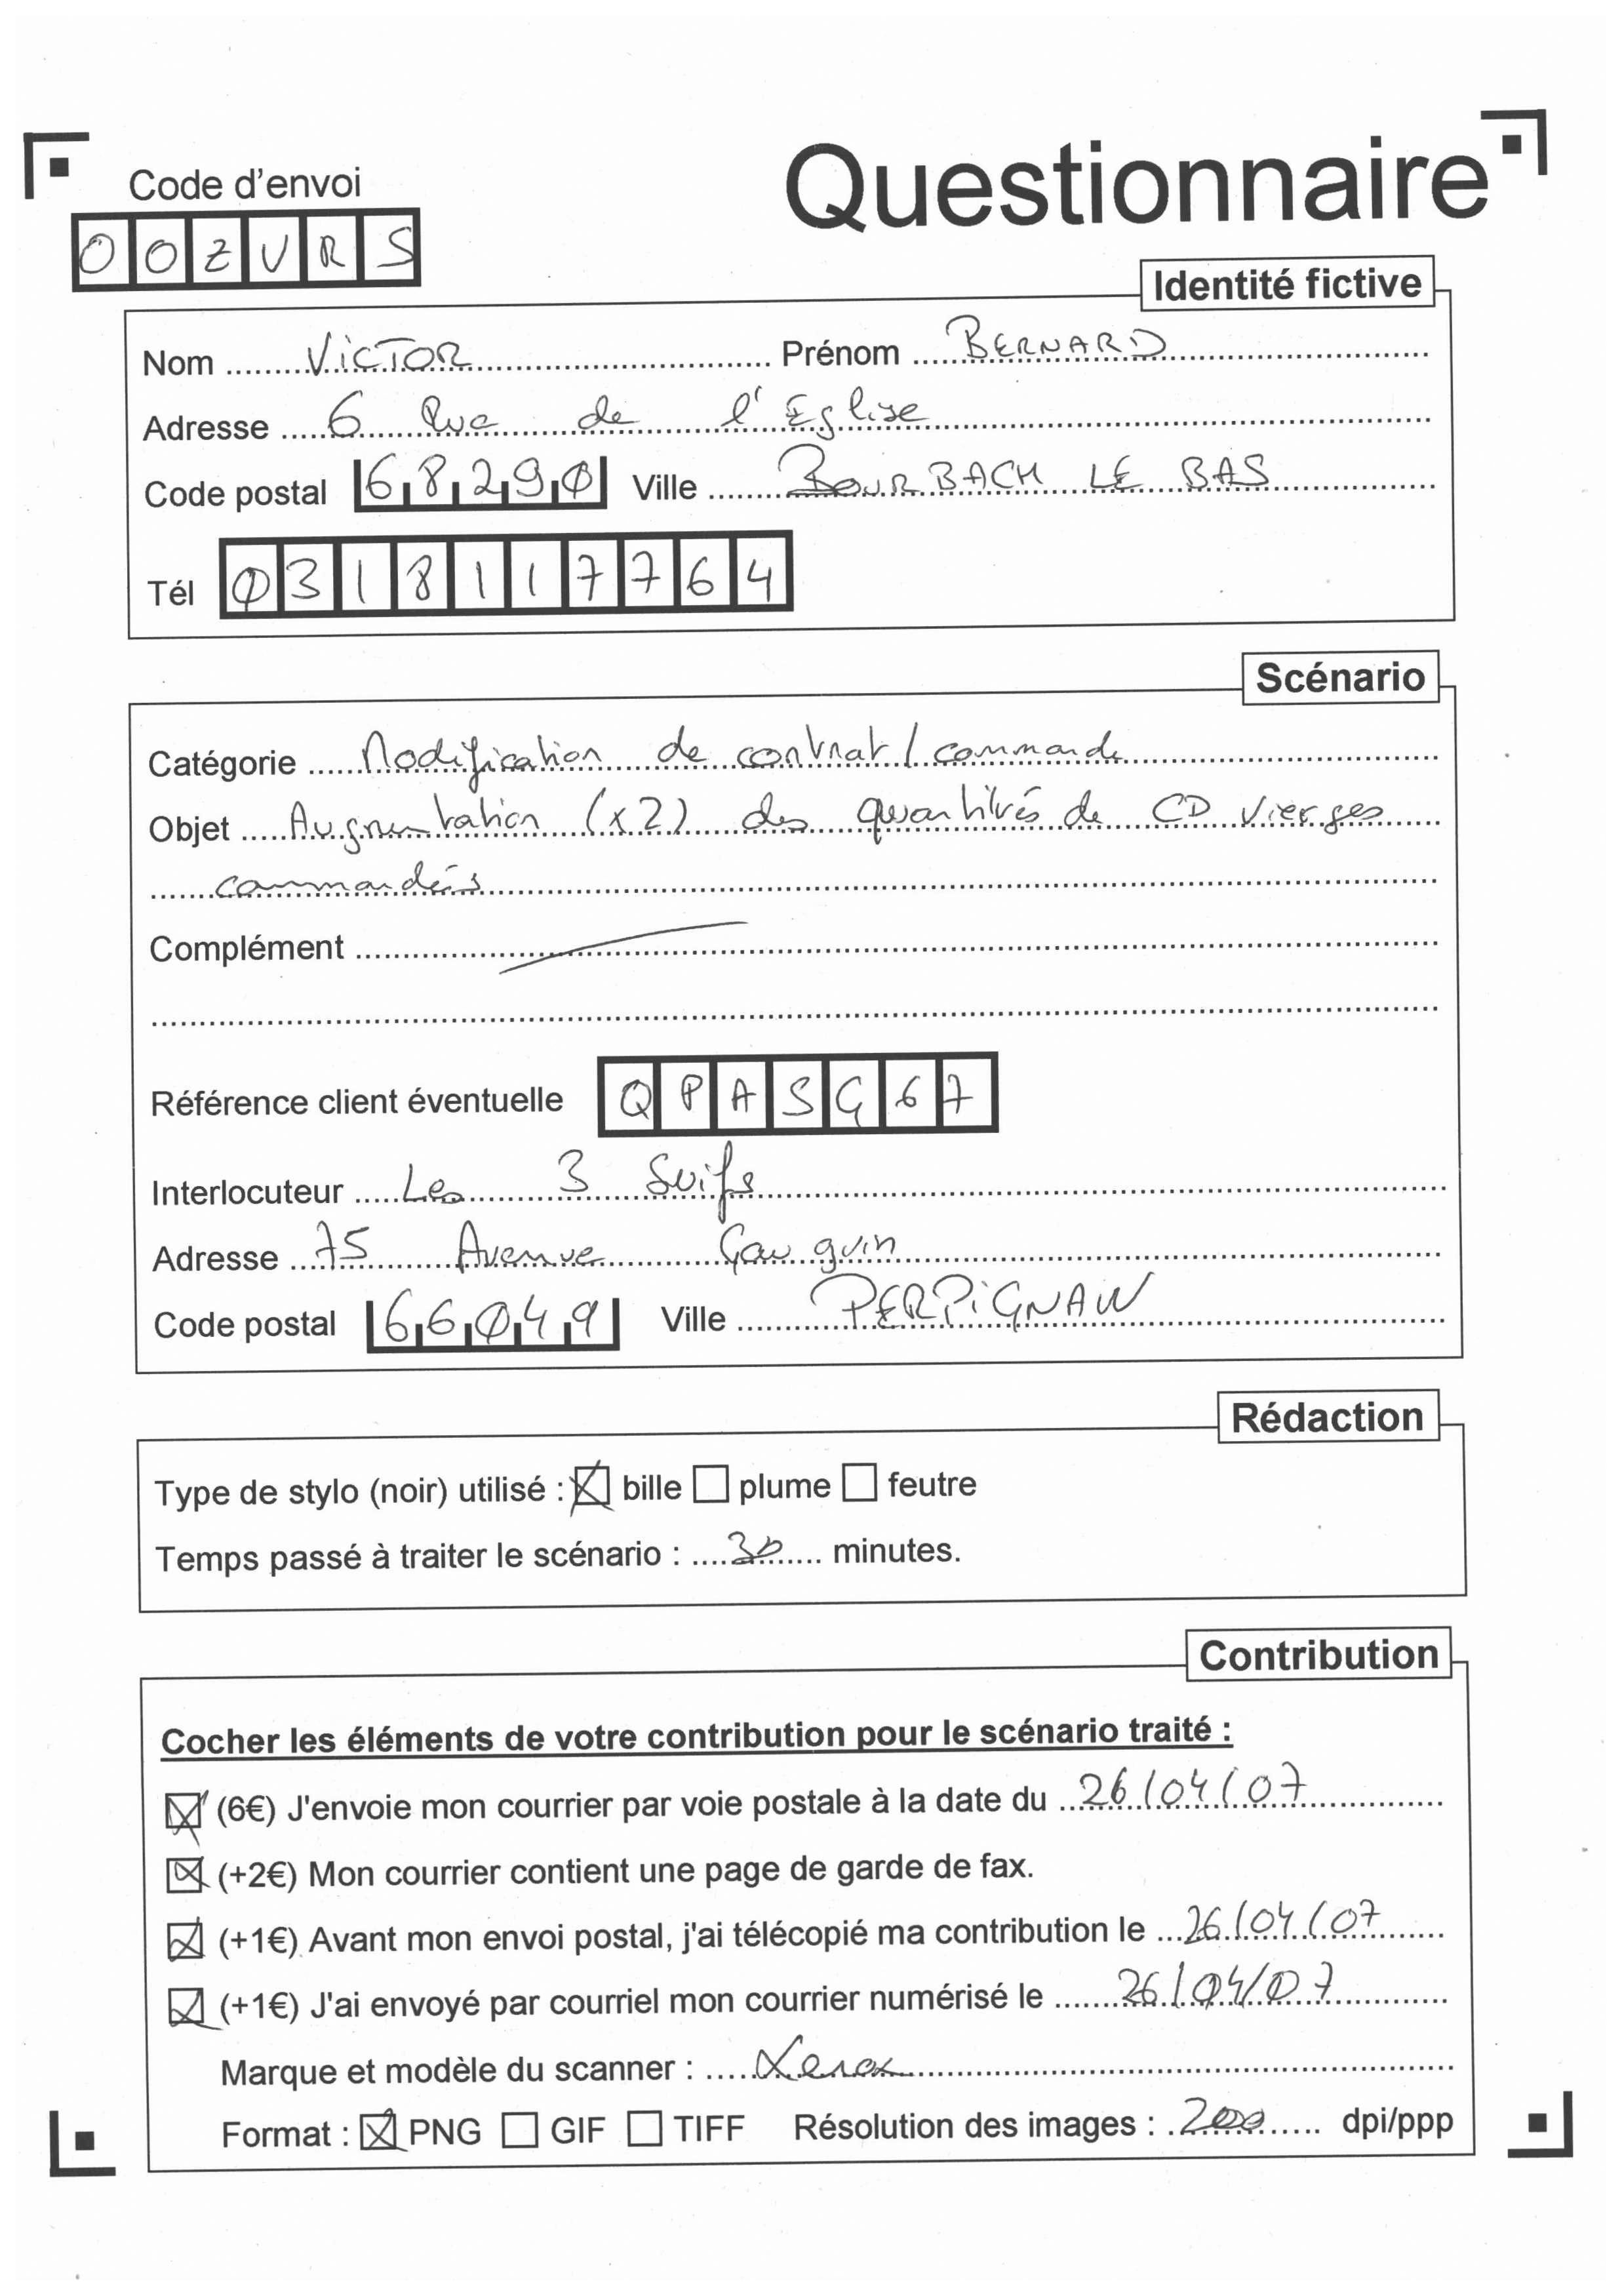 Questionnaire
Code d'envoi
OOZVRS
Identité fictive
Nom ViCTOR Prénom BERNARD
Adresse 6 Rue de l'Eglise
Code postal 68290 Ville BOURBACH LE BAS
Tél 0318117764
Scénario
Catégorie Modification de contrat / commande
Objet Augmentation (x2) des quantités de CD vierges
commandés
Complément
Référence client éventuelle QPASG67
Interlocuteur Les 3 Suifs
Adresse 75 Avenue Gauguin
Code postal 66049 Ville PERPiGNAN
Rédaction
Type de stylo (noir) utilisé : bille plume feutre
Temps passé à traiter le scénario : 30 minutes.
Contribution
Cocher les éléments de votre contribution pour le scénario traité :
(6€) J'envoie mon courrier par voie postale à la date du 26/04/07
(+2€) Mon courrier contient une page de garde de fax.
(+1€) Avant mon envoi postal, j'ai télécopié ma contribution le 26/04/07
(+1€) J'ai envoyé par courriel mon courrier numérisé le 26/04/07
Marque et modèle du scanner : Xerox
Format : PNG GIF TIFF Résolution des images : 200 dpi/ppp